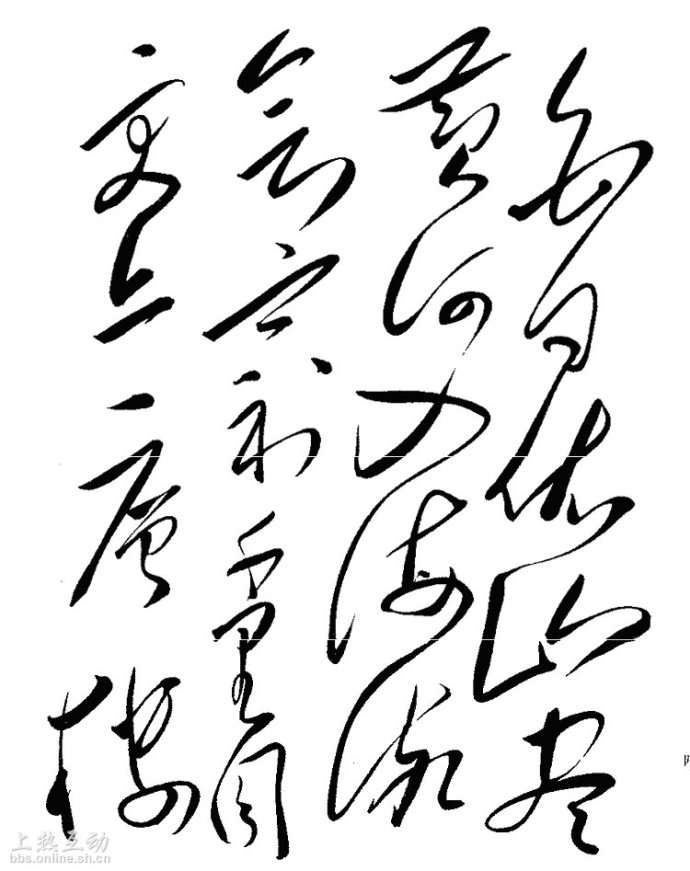 白日依山盡
黄河入海流
欲窮千里目
更上一層樓
上热互动
bbs.online.sh.cn